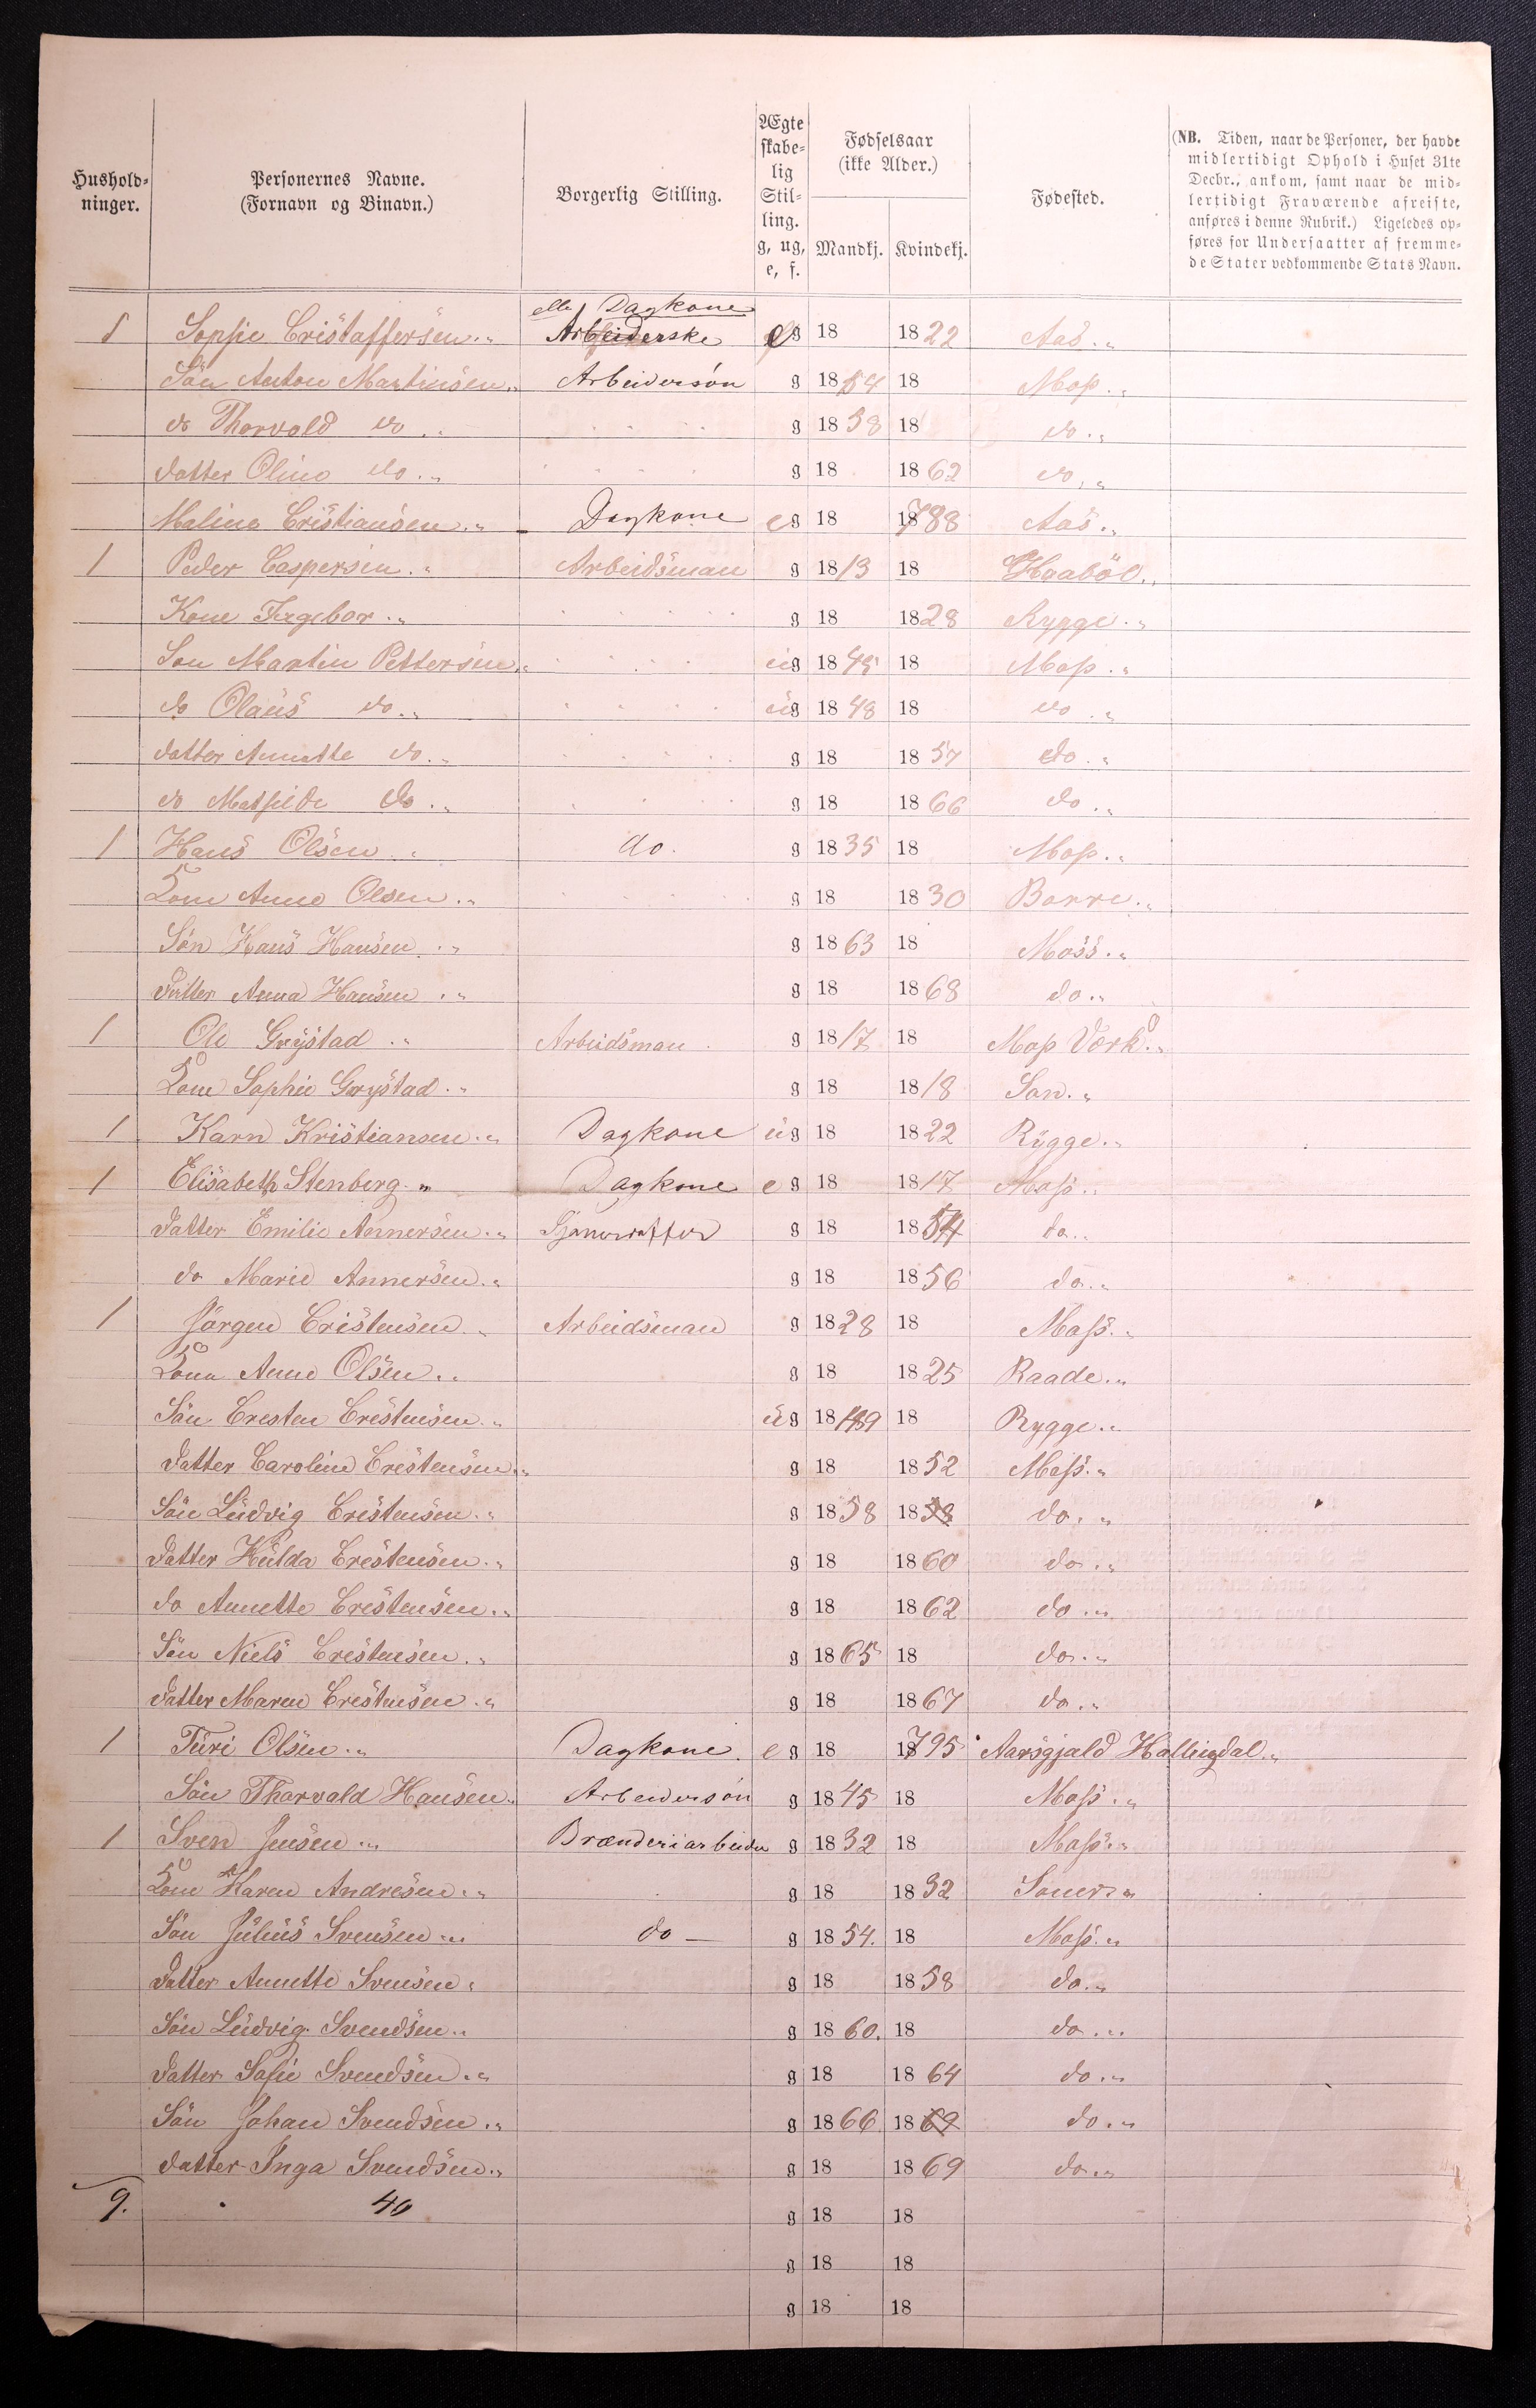 Hushold-
ninger.
Personernes Navne.
(Fornavn og Binavn.)
Borgerlig Stilling.
Ægte
skabe-
lig
Stil-
ling.
g, ug,
e, f.
Fødselsaar
(ikke Alder.)
Mandkj. Kvindekj.
Fødested.
(NB. Tiden, naar de Personer, der havde
midlertidigt Ophold i Huset 31te
Decbr., ankom, samt naar de mid-
lertidigt Fraværende afreiste,
anføres i denne Rubrik.) Ligeledes op-
føres for Undersaatter af fremme-
de Stater vedkommende Stats Navn.
Dagkone
1 Sopfie Cristaffersen „ Arbeiderske g 18 1822 Aas „
Søn Anton Martinsen „ Arbeidersøn g 1854 18 Moss „
do Thorvald do „ g 1858 18 do „
datter Oline do „ g 18 1862 do „
Maline Cristiansen „ Dagkone eg 18 1788 Aas „
1 Peder Caspersen „ Arbeidsman g 1813 18 Haabøl „
Kone Ingebor „ g 18 1828 Rygge „
Son Martin Pettersen „ ug 1845 18 Moss „
do Olaus do „ ug 1848 18 do „
datter Annette do „ g 18 1857 do „
do Matfilde do „ g 18 1866 do „
1 Hans Olsen „ do. g 1835 18 Moss „
Kone Anne Olsen „ g 18 1830 Borre „
Søn Hans Hansen „ g 1863 18 Moss „
Datter Anna Hansen „ g 18 1868 do „
1 Ole Grystad „ Arbeidsman g 1817 18 Moss Værk „
Kone Sophie Grystad „ g 18 1818 Son „
1 Karn Kristiansen „ Dagkone ug 18 1822 Rygge „
1 Elisabeth Stenberg „ Dagkone eg 18 1817 Moss „
Datter Emilie Annersen „ g 18 1854 do „
do Marie Annersen „ g 18 1856 do „
1 Jørgen Cristensen „ Arbeidsman g 1828 18 Moss „
Kone Anne Olsen „ g 18 1825 Raade „
Søn Cresten Crestensen „ ug 1849 18 Rygge „
Datter Caroline Crestensen „ g 18 1852 Moss „
Søn Ludvig Crestensen „ g 1858 1858 do „
Datter Hulda Crestensen „ g 18 1860 do „
do Annette Crestensen „ g 18 1862 do „
Søn Niels Crestensen „ g 1865 18 do „
Datter Maren Crestensen „ g 18 1867 do „
1 Turi Olsen „ Dagkone eg 18 1795 Aarsgjald Hallingdal „
Søn Tharvald Hansen „ Arbeidersøn g 1845 18 Moss „
1 Sven Jensen „ Brænderiarbeider g 1832 18 Moss „
Kone Karen Andresen „ g 18 1832 Soner „
Søn Julius Svensen „ do — g 1854. 18 Moss „
Datter Annette Svensen „ g 18 1858 do „
Søn Ludvig Svendsen „ g 1860. 18 do „
Datter Safie Svendsen „ g 18 1864 do „
Søn Johan Svendsen „ g 1866 1869 do „
Datter Inga Svendsen „ g 18 1869 do „
9. 40 g 18 18
g 18 18
g 18 18